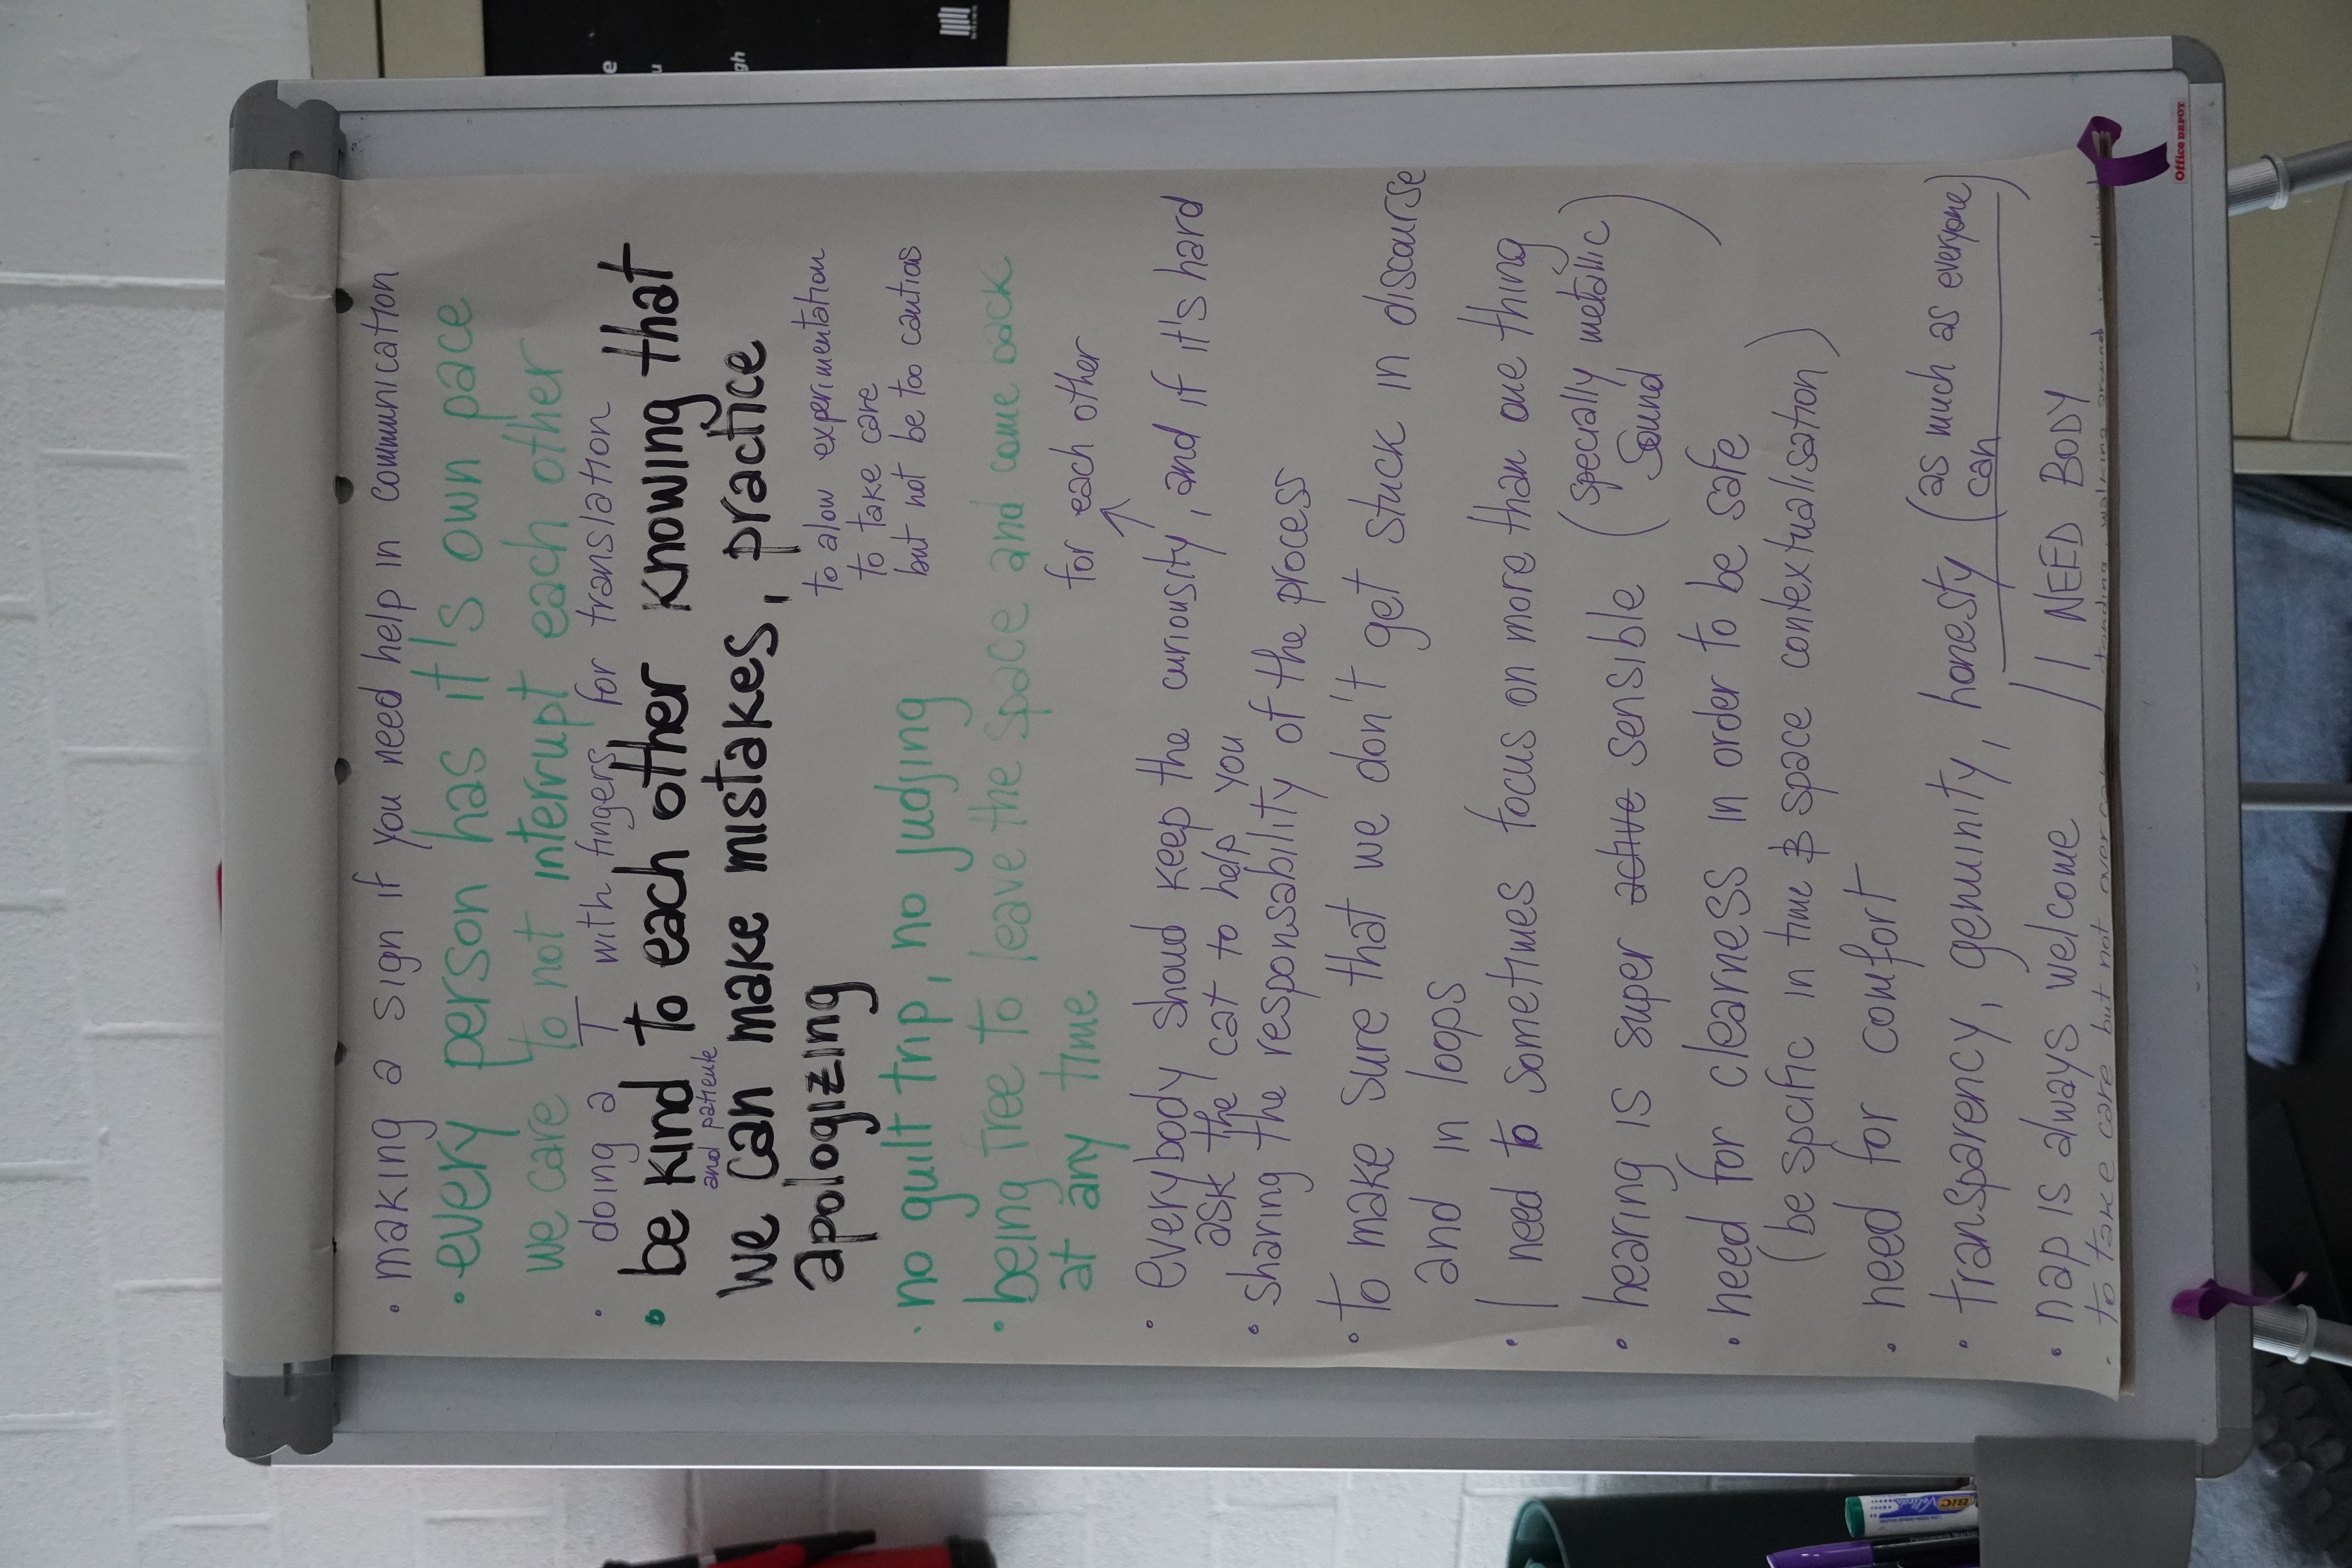 • making a sign if you need help in communication
• every person has it's own pace
we care to not interrupt each other
• doing a T with fingers for translation
• be kind to each other knowing that
and patiente
we can make mistakes, practice
apologizing
to alow experimentation
to take care
but not be too cautios
• no guilt trip, no judjing
• being free to leave the space and come back
at any time
for each other
• everybody shoud keep the curiousity, and if it's hard
ask the cat to help you
• sharing the responsability of the process
• to make sure that we don't get stuck in discourse
and in loops
• I need to sometimes focus on more than one thing
• hearing is super active sensible (specially metallic
Sound)
• need for clearness in order to be safe
(be spcific in time & space contextualisation)
• need for comfort
• transparency, genuinity, honesty (as much as everyone
can)
• nap is always welcome / I NEED BODY
• to take care but not over standing, walking around
Office DEPOT
BIC Velleda
e
u
gh